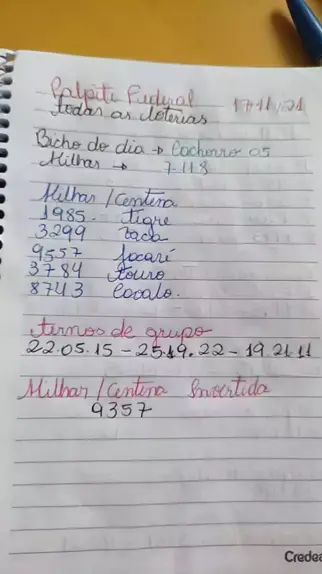 Palpite Federal 17.11.21
todas as loterias
Bicho do dia → Cachorro 05
Milhar → 7.118
Milhar / Centena
1985. tigre
3299 vaca
9557 Jacaré
3784 touro
8743 Cavalo.
ternos de grupo
22.05.15 - 25.19.22 - 19.21.11
Milhar / Centena Invertida
9357
Credea